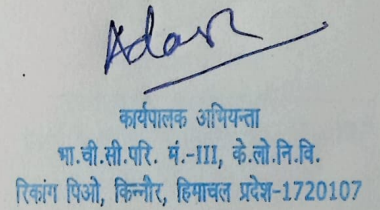 Adarsh
कार्यपालक अभियन्ता
भा.ची.सी.परि. मं.-III, के.लो.नि.वि.
रिकांग पिओ, किन्नौर, हिमाचल प्रदेश-1720107